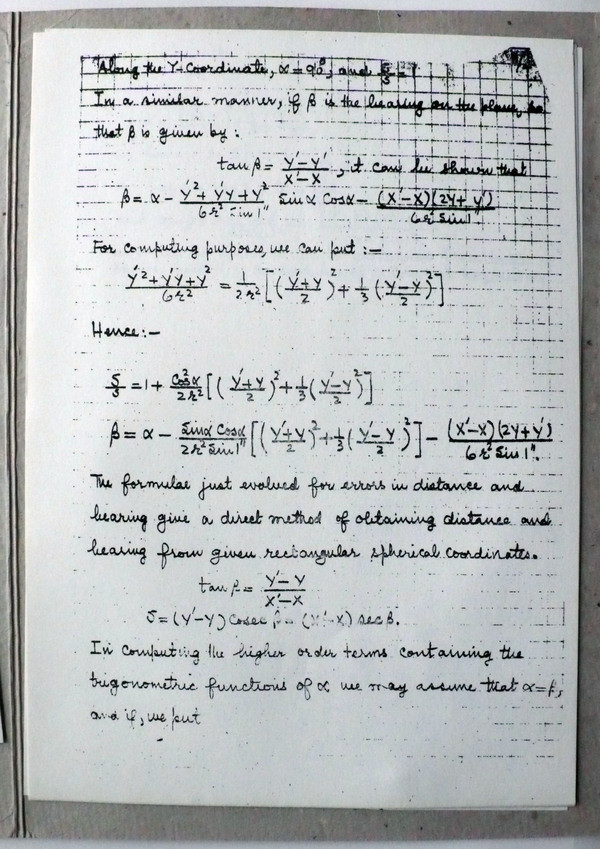 Along the Y-Coordinate, α = 90°, and S/s = 1
In a similar manner, if β is the bearing on the plane, so
that β is given by :
tan β = (Y′ − Y′)/(X′ − X) , it can be shown that
β = α − (Y′² + Y′Y + Y²)/(6r² Sin 1″) Sin α Cos α − (X′−X)(2Y+Y′)/(6r² Sin 1″)
For computing purposes, we can put :—
(Y′² + Y′Y + Y²)/(6r²) = 1/(2r²) [((Y′+Y)/2)² + 1/3 ((Y′−Y)/2)²]
Hence :—
S/s = 1 + Cos²α/(2r²) [((Y′+Y)/2)² + 1/3 ((Y′−Y)/2)²]
β = α − (Sin α Cos α)/(2r² Sin 1″) [((Y′+Y)/2)² + 1/3 ((Y′−Y)/2)²] − (X′−X)(2Y+Y′)/(6r² Sin 1″)
The formulae just evolved for errors in distance and
bearing give a direct method of obtaining distance and
bearing from given rectangular spherical coordinates.
tan β = (Y′−Y)/(X′−X)
S = (Y′−Y) Cosec β = (X′−X) sec β.
In computing the higher order terms containing the
trigonometric functions of α we may assume that α = β,
and if, we put